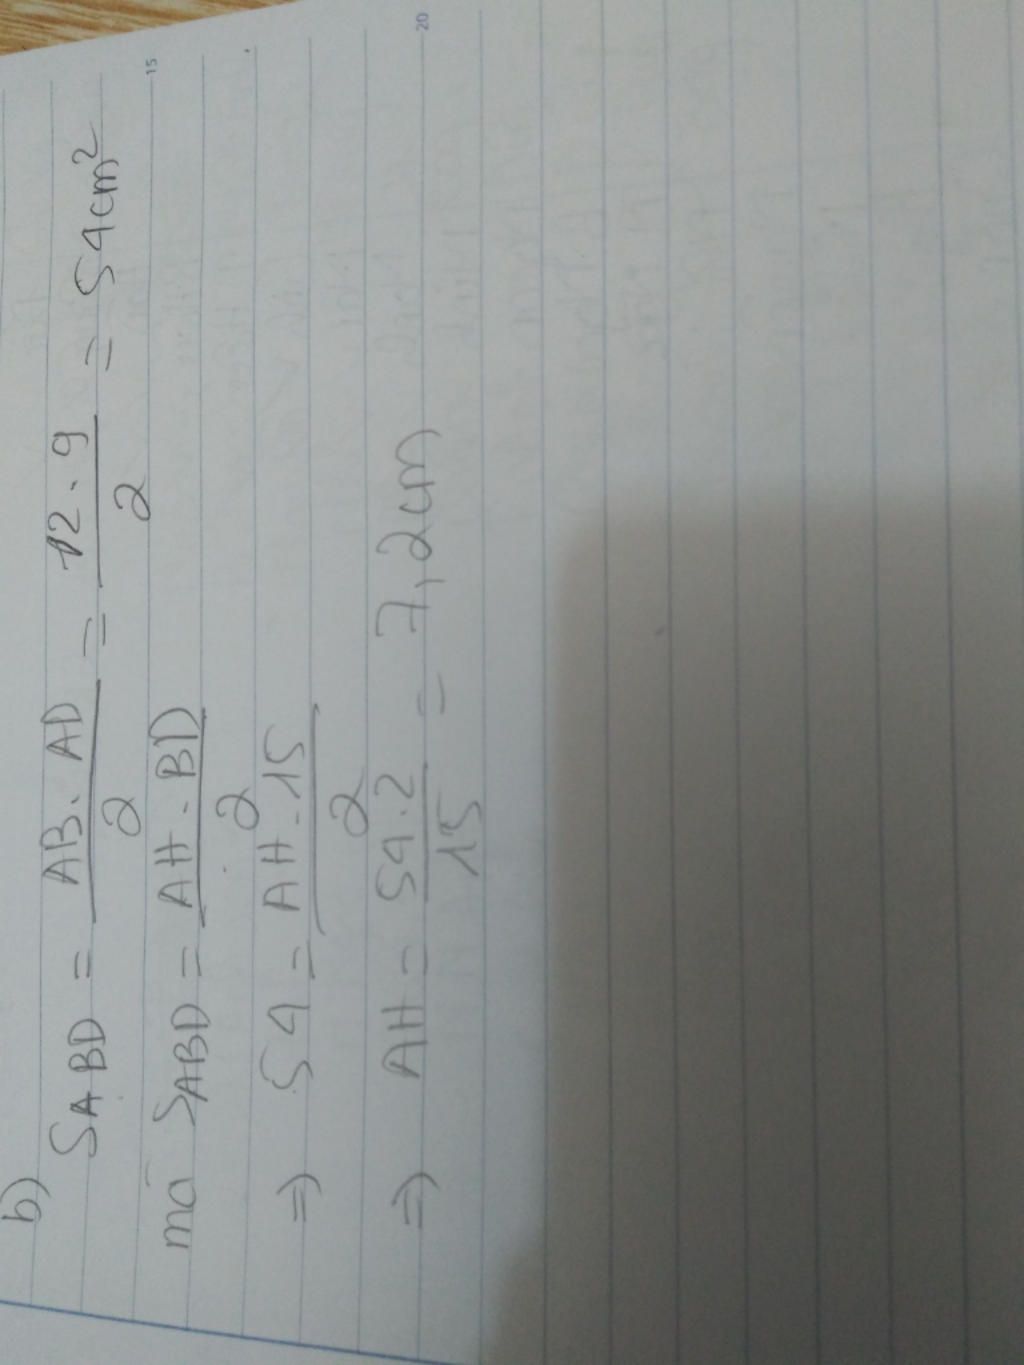 b)
SABD = AB. AD / 2 = 12 . 9 / 2 = 54cm²
mà SABD = AH . BD / 2
=> 54 = AH . 15 / 2
=> AH = 54.2 / 15 = 7,2cm
15
20